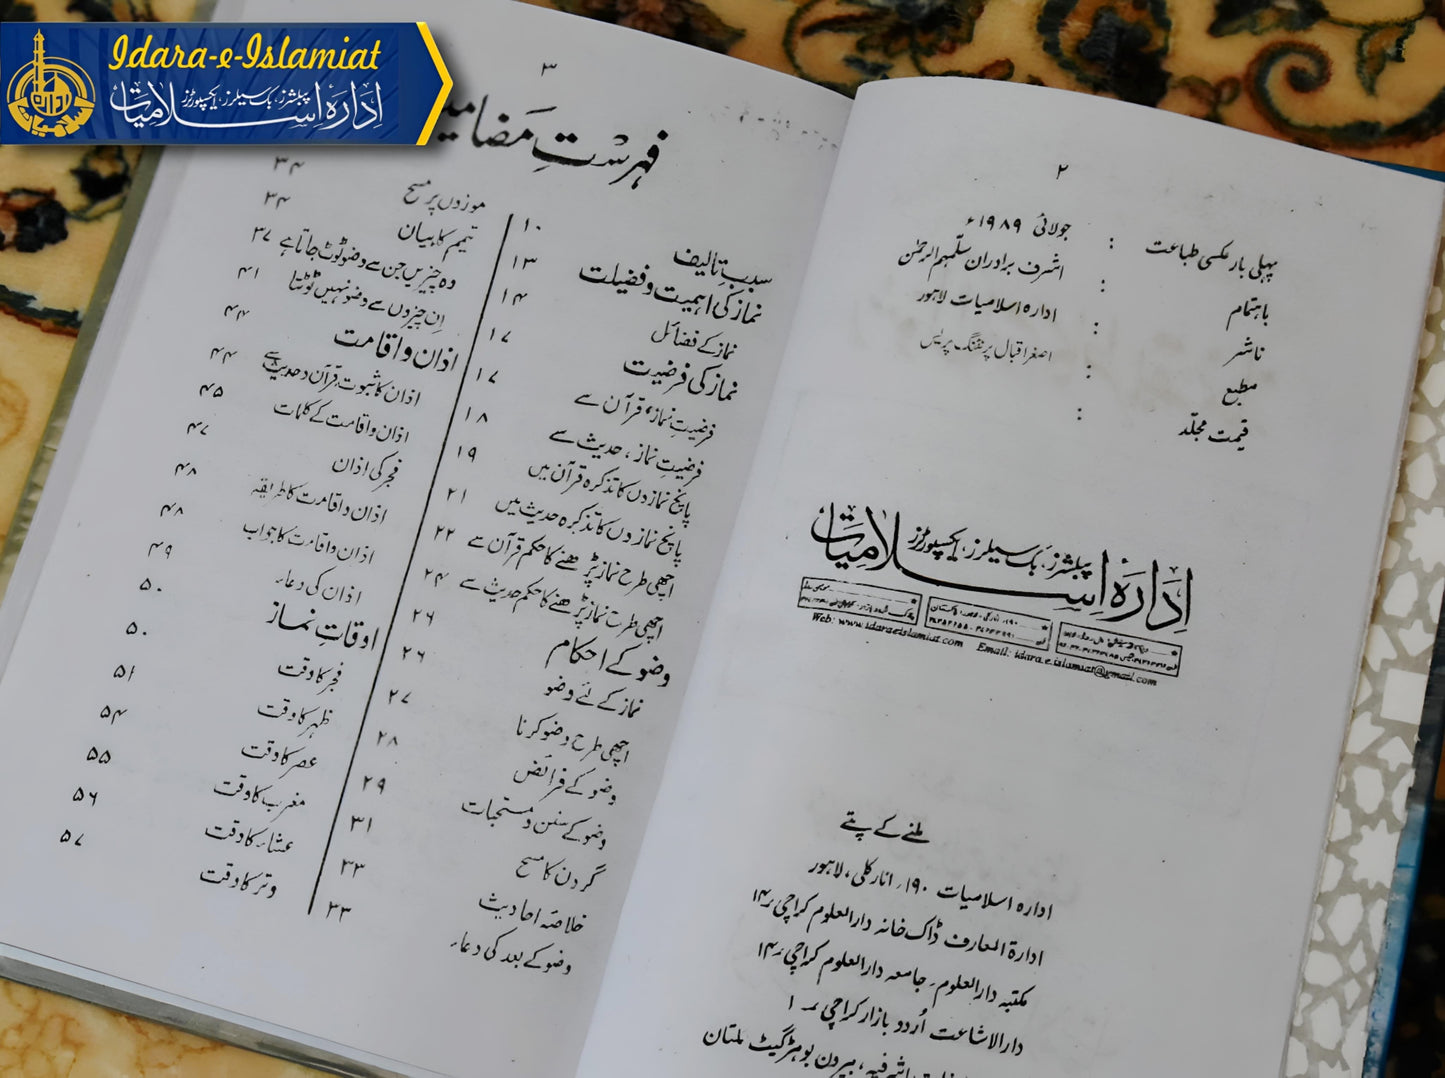 Idara-e-Islamiat
پبلشرز، بک سیلرز، ایکسپورٹرز
ادارہ اسلامیات
۲
پہلی بار عکسی طباعت : جولائی ۱۹۸۹ء
باہتمام : اشرف برادران سلّمہم الرحمٰن
ناشر : ادارہ اسلامیات لاہور
مطبع : اصغر اقبال پرنٹنگ پریس
قیمت مجلّد :
پبلشرز، بک سیلرز، ایکسپورٹرز
ادارہ اسلامیات
Web: www.idaraeislamiat.com Email: idara.e.islamiat@gmail.com
ملنے کے پتے
ادارہ اسلامیات ۱۹۰، انارکلی، لاہور
ادارۃ المعارف ڈاک خانہ دارالعلوم کراچی ۱۴
مکتبہ دارالعلوم، جامعہ دارالعلوم کراچی ۱۴
دارالاشاعت اُردو بازار کراچی ۱
اشرفیہ، بیرون بوہڑ گیٹ ملتان
۳
فہرستِ مضامین
سببِ تالیف ۱۰
نماز کی اہمیت و فضیلت ۱۳
نماز کے فضائل ۱۴
نماز کی فرضیت ۱۷
فرضیتِ نماز، قرآن سے ۱۷
فرضیتِ نماز، حدیث سے ۱۸
پانچ نمازوں کا تذکرہ قرآن میں ۱۹
پانچ نمازوں کا تذکرہ حدیث میں ۲۱
اچھی طرح نماز پڑھنے کا حکم قرآن سے ۲۲
اچھی طرح نماز پڑھنے کا حکم حدیث سے ۲۴
وضو کے احکام ۲۶
نماز کے لئے وضو ۲۶
اچھی طرح وضو کرنا ۲۷
وضو کے فرائض ۲۸
وضو کے سنن و مستحبات ۲۹
گردن کا مسح ۳۱
خلاصۂ احادیث ۳۳
وضو کے بعد کی دعاء ۳۳
موزوں پر مسح ۳۴
تیمم کا بیان ۳۴
وہ چیزیں جن سے وضو ٹوٹ جاتا ہے ۳۷
اِن چیزوں سے وضو نہیں ٹوٹتا ۴۱
اذان و اقامت ۴۴
اذان کا ثبوت قرآن و حدیث سے ۴۴
اذان و اقامت کے کلمات ۴۵
فجر کی اذان ۴۷
اذان و اقامت کا طریقہ ۴۸
اذان و اقامت کا جواب ۴۸
اذان کی دعاء ۴۹
اوقاتِ نماز ۵۰
فجر کا وقت ۵۰
ظہر کا وقت ۵۱
عصر کا وقت ۵۴
مغرب کا وقت ۵۵
عشاء کا وقت ۵۶
وتر کا وقت ۵۷